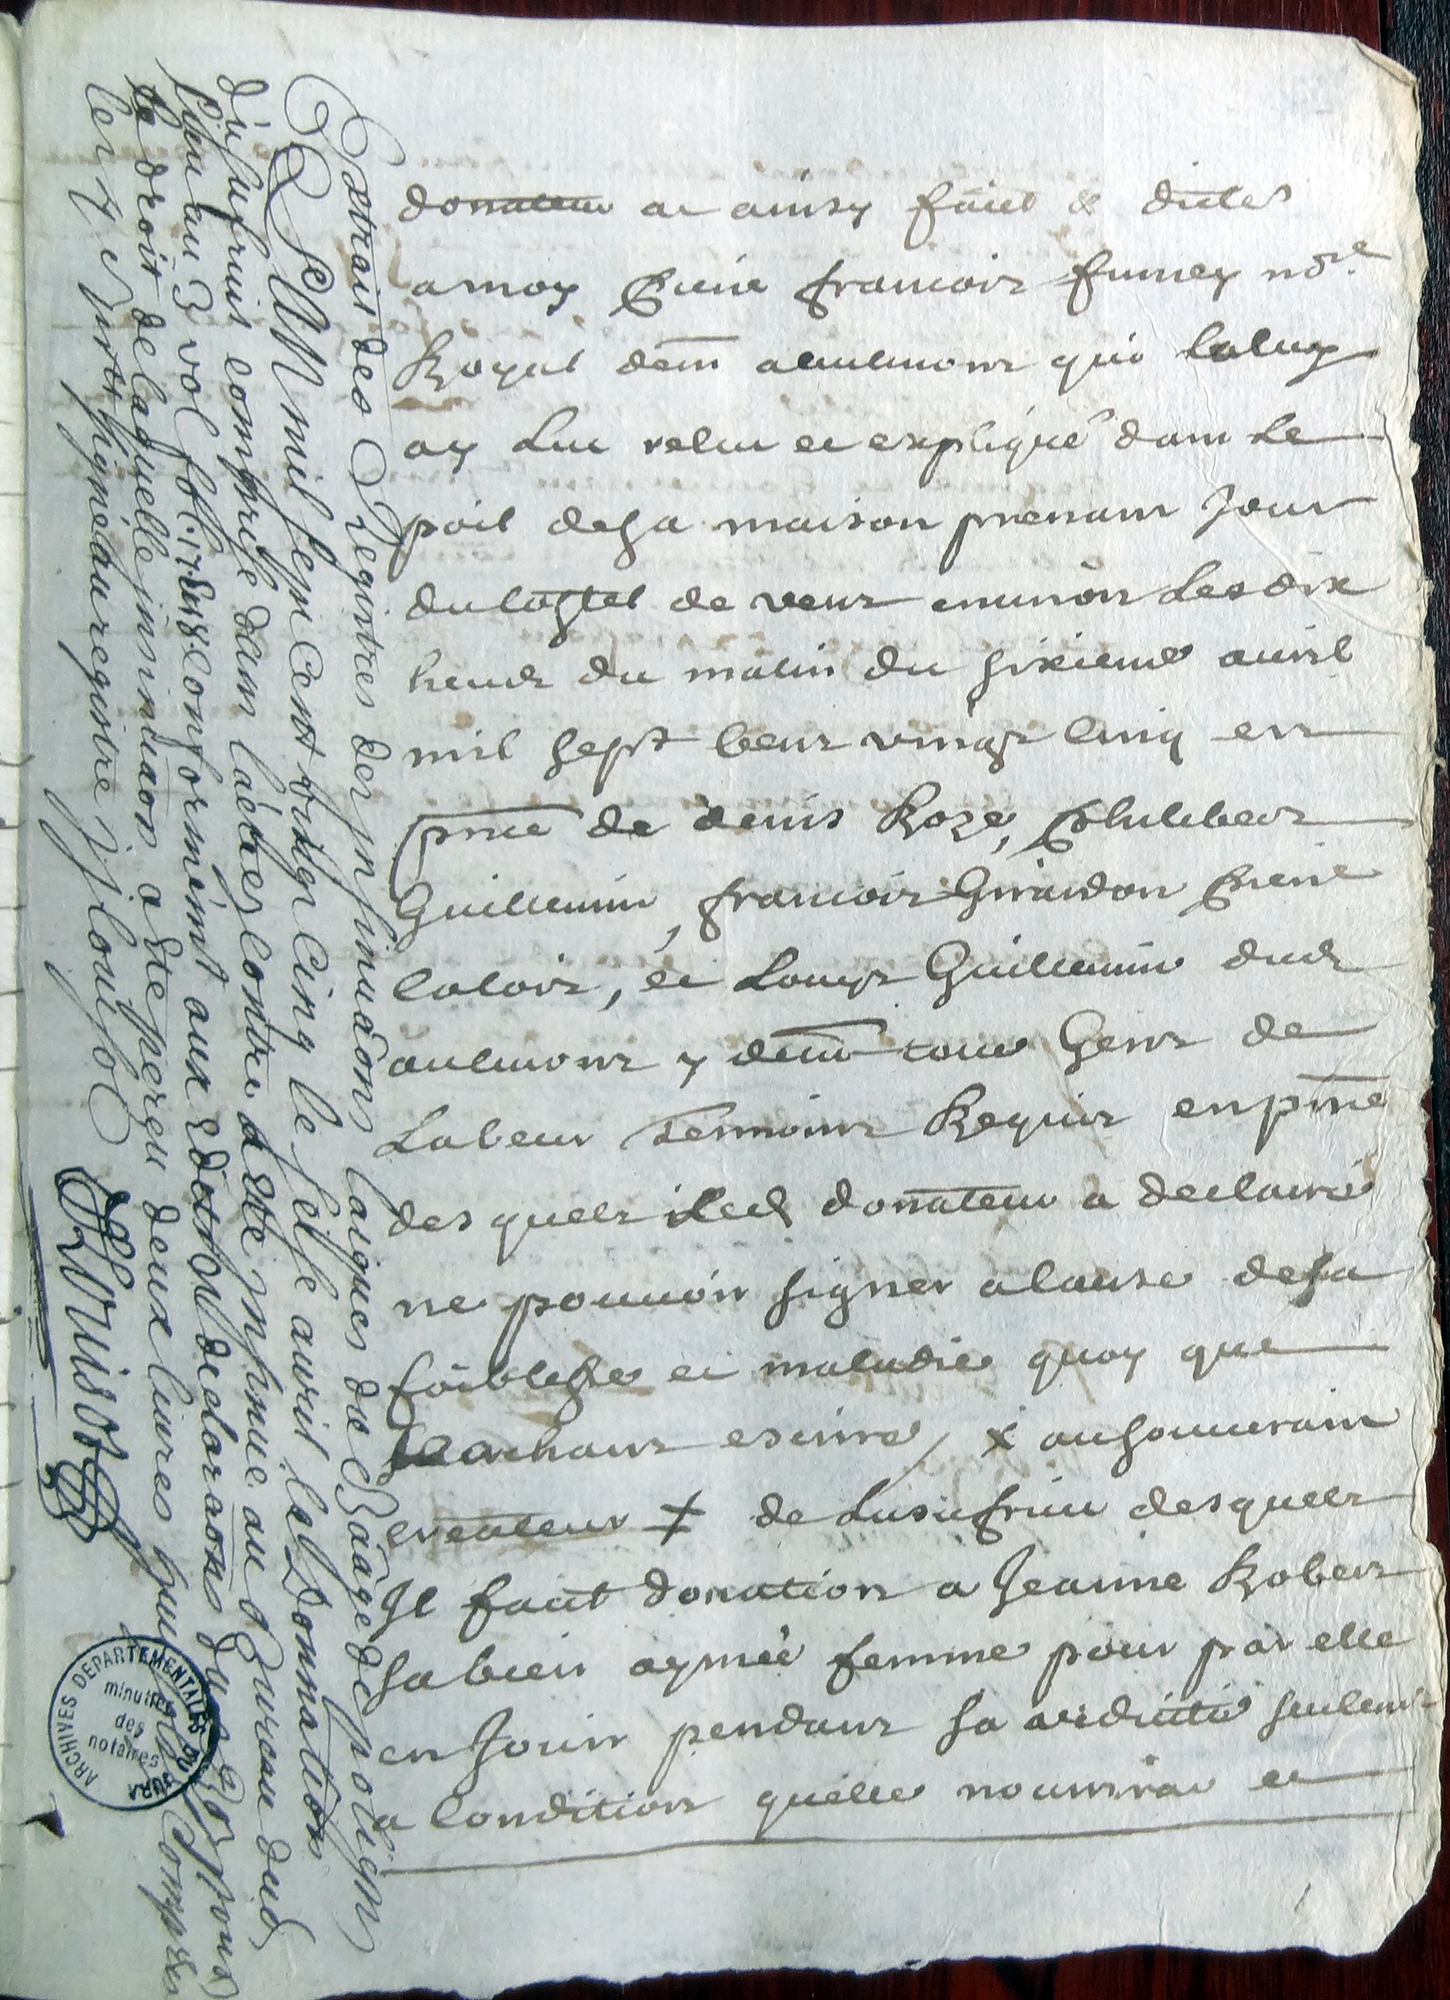 donateur a ainsy faict & dictes
a moy Pierre francois fumey no.re
Royal dem a aulmont qui la luy
ay Lue relue et expliqué dans Le
poil de sa maison prenant Jour
du costel de vent environ Les dix
heures du matin du sixieme avril
mil sept cent vingt cinq en
pnce de denis Roze, Philibert
Guillemin, francois Girardon Pierre
, et Louys Guillemin dud
aulmont y demt tous Gens de
Labeur Temoins Requis en pnce
des quels Led donateur a declairé
ne pouvoir signer a cause de sa
foiblesse et maladie quoy que
sachant escrire, x au souverain
createur x de Lusufruit desquels
Il faict donation a Jeanne Robert
sa bien aymée femme pour par elle
en Jouir pendant sa viduité seulemt
a Condition quelle nourrira et
Extrait des Registres des insinuaons laiques du Baage de poligny
Lan mil sept Cent vingt Cinq le seise avril, la Donnation
dusufruit comprise dans lacte cy contre a esté insinué au Bureau dud
lieu au 3 vol fol. 17 conformémt aux Edits & declaraons du Roy pour
le droit de laquelle insinuaon a Eté perçu deux livres huit sols Compris
les 4 s. signé au registre j loulot
ARCHIVES DEPARTEMENTALES DU JURA
minutes
des
notaires